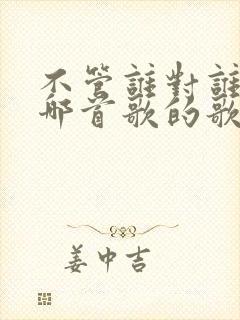 不管誰對誰
哪首歌的歌
姜中吉